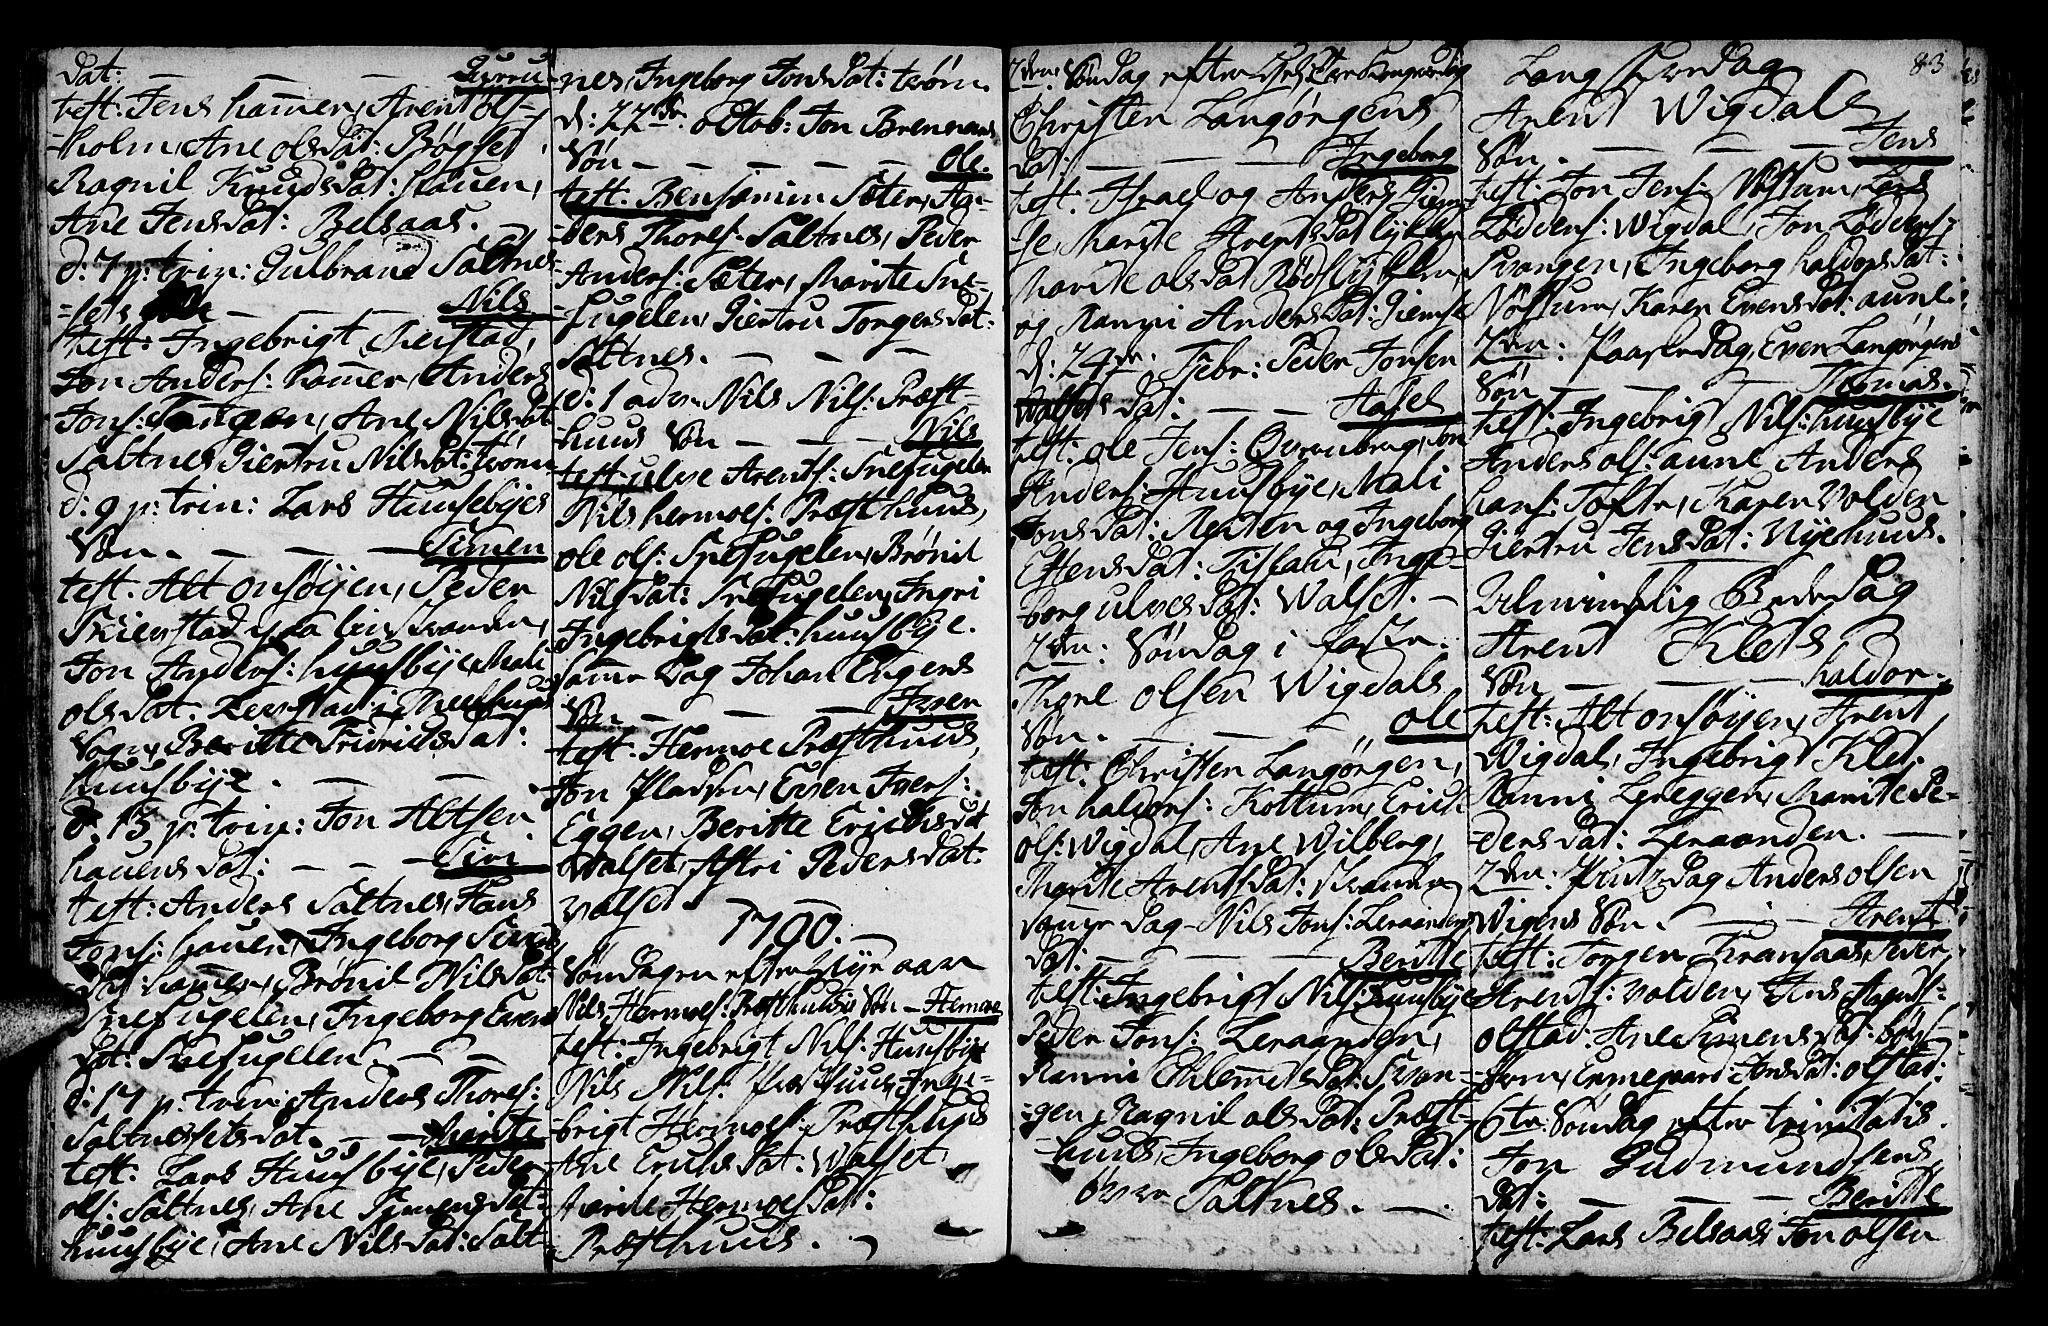 Dat: — — — Gurru
test: Jens hamer, Arent ols-
-holm, Ane olsDat: Bøgset
Ragnil KnudsDat: hauen,
Ane JensDat: Belsaas. —
d: 7 p: trin: Gulbrand Saltnes-
-sets — — — Nils
test: Ingebrigt Meistad,
Jon Anders: hamer, Anders
Jons: Tangen, Ane NilsDat
Saltnes Giertru NilsDat: trön
d: 9 p: trin: Lars Huusebyes
Søn. — — — Simen
test. Alt onsøyen, Peder
Skierstad paa
Jon Anders: huusbye, Mali
olsDat. Leerstad i Meelhuus
Sogn, Beritte FridrichsDat:
huusbye. — — —
d. 13 p: trin: Jon Altsen
hauens Dat: — — — Siri
test: Anders Saltnes, Hans
Jons: hauen, Ingeborg Simens
Dat: hamer, Brønil NilsDat:
Snefugelen, Ingeborg Evens
Dat: Snefugelen. — —
d: 17 p: trin: Anders Thores:
Saltnessets Dat. — — Marite
test: Lars Huusbye, Peder
ols: Saltnes, Ane SimensDat:
huusbye, Ane NilsDat: Salt
nes, Ingeborg JonsDat: trön.
d: 22de octob: Jon Brennens
Søn — — — — Ole.
test. Bensiamin Sæter, An-
-ders Thores. Saltnes, Peder
Anders: Sæter, Marite Sne-
fugelen, Giertru TorgersDat:
Saltnes. — — —
d: 1 adv: Nils Nils: Præst-
huus Søn — — — Nils
test: ulve Arents: Snefugelen
Nils hermoes: Præsthuus,
ole ols: Snefugelen, Brønil
NilsDat: Snefugelen, Ingri
IngebrigtsDat: huusbye.
samme Dag Johan Engens
Søn — — — Iver
test: Hermoe Præsthuus,
Jon Pladsen, Even Ivers:
Eggen, Beritte ErichsDat
Walset, Astri PedersDat:
valset —
1790. —
Søndagen efter Nye aar
Nils Hermoes: Præsthuuses Søn — Hermoe
test: Ingebrigt Nils: Huusbye
Nils Nils: præsthuus, Inge-
-brigt Hermoes: Præsthuus
Ane ErichsDat: Walset,
Marite HermoesDat:
Præsthuus. —
2den Søndag efter
Christen Langørgens
Dat: — — — Ingeborg
test. Israel og Anders Giem-
-se, Marite ArentsDat lykken
Marite olsDat Rødslykken,
og Ranni AndersDat: Giemse
d: 24de. Febr: Peder Jonsen
Walsets Dat: — — Assel
test: ole Jens: Qvenbrug, Jon
Anders: Huusbye, Mali
JonsDat: Nesten og Ingeborg
EstensDat: Inge-
borg ulvesDat: Walset. —
2den: Søndag i fasten:
Thore olsen Wigdals
Søn. — — — ole
test: Christen Langørgen,
Jon haldors: Kottum, Erich
ols: Wigdal, Ane Wilberg,
Marite ArentsDat:
samme Dag Nils Jons: Leraandens
Dat: — — — Beritte
test: Ingebrigt Nils: huusbye
Peder Jons: Leraanden,
Ranni ChlemetsDat: Svan-
-gen, Ragnil olsDat: Præst-
-huus, Ingeborg olsDat:
Saltnes. —
83
Lang fredag
Arent Wigdals
Søn. — — — Jens
test: Jon Jens: Nøstum, Lars
Loddens: Wigdal, Jon Loddens:
Svangen, Ingeborg haldorsDat:
Nøstum, Karen EvensDat: aune.
2den: Paaskedag, Even Langørgens
Søn — — — Tommas.
test: Ingebrigt Nils: huusbye
Anders ols: aune Anders
hans: Tofte, Karen Volden
Giertru JensDat: Nyehuus.
Almindelig BedeDag
Arent Klets
Søn — — — haldor.
test: Alt onsøyen, Arent
Wigdal, Ingebrigt Klet,
Ranni Lereggen, Marite Pe-
-dersDat: Leraanden. —
2den: PintzDag Anders olsen
Wigens Søn. — — Arent
test: Torgen Kransaas, Peder
Arents: Volden, Jens
olstad: Ane SimensDat:
Ermegaard: JonsDat: olstad:
6te Søndag efter trinitatis.
Jon Gudmundsens
Dat: — — — Beritte
test: Lars Belsaas Jon olsen